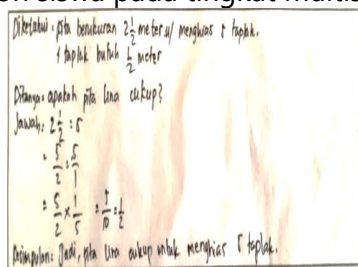 siswa pada tingkat
Diketahui : pita berukuran 2 1/2 meter u/ menghias 5 taplak.
1 taplak butuh 1/2 meter
Ditanya : apakah pita Lina cukup?
Jawab : 2 1/2 : 5
= 5/2 : 5/1
= 5/2 x 1/5 = 5/10 = 1/2
Kesimpulan : Jadi, pita Lina cukup untuk menghias 5 taplak.